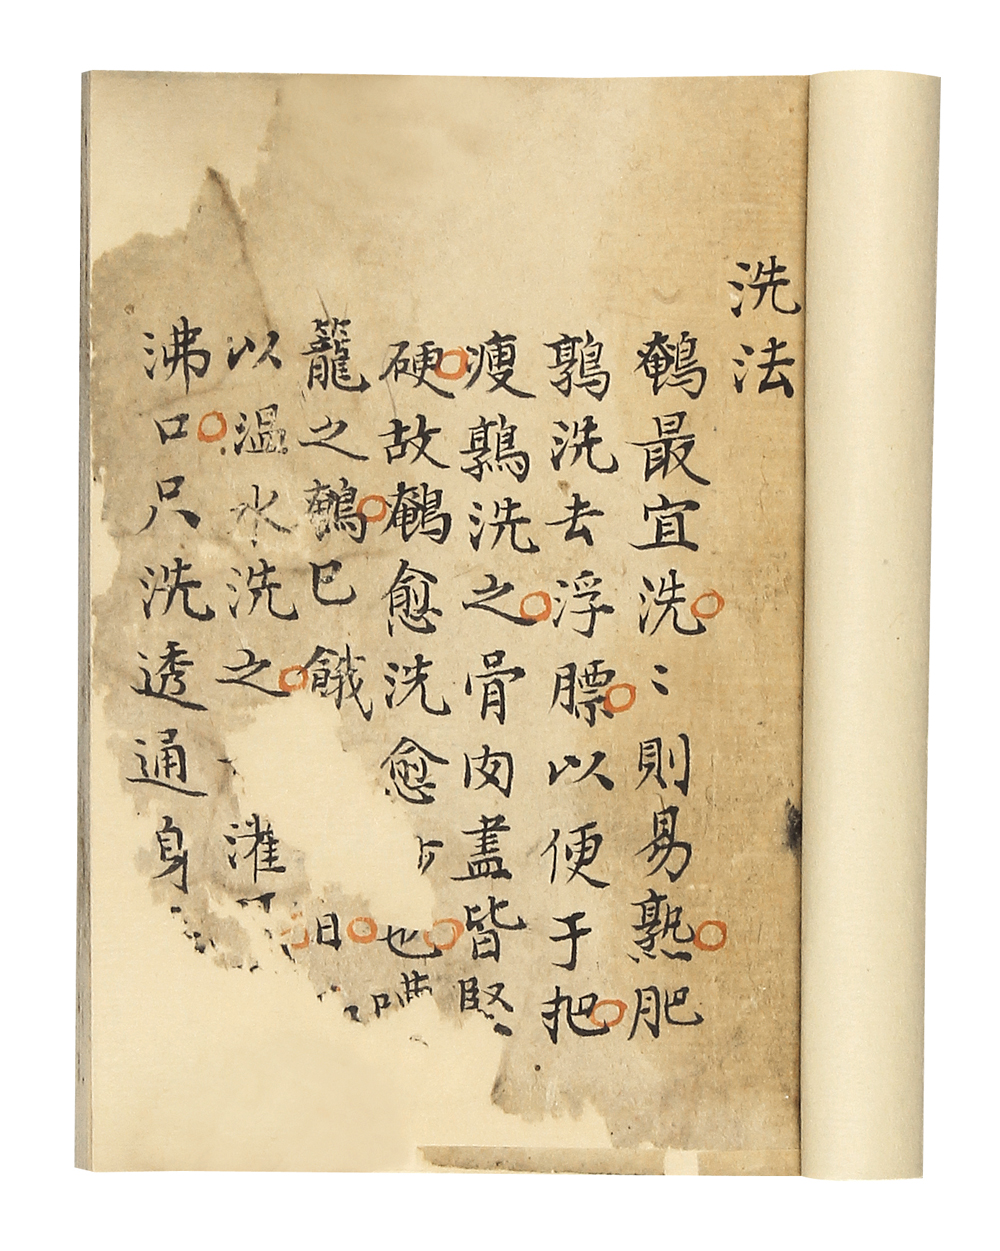 洗法
鵪最宜洗〻則易熟肥
鶉洗去浮膘以便于把
瘦鶉洗之骨肉盡皆堅
硬故鵪愈洗愈也
籠之鵪已餓泪
以温水洗之灌
沸口尺洗透通身